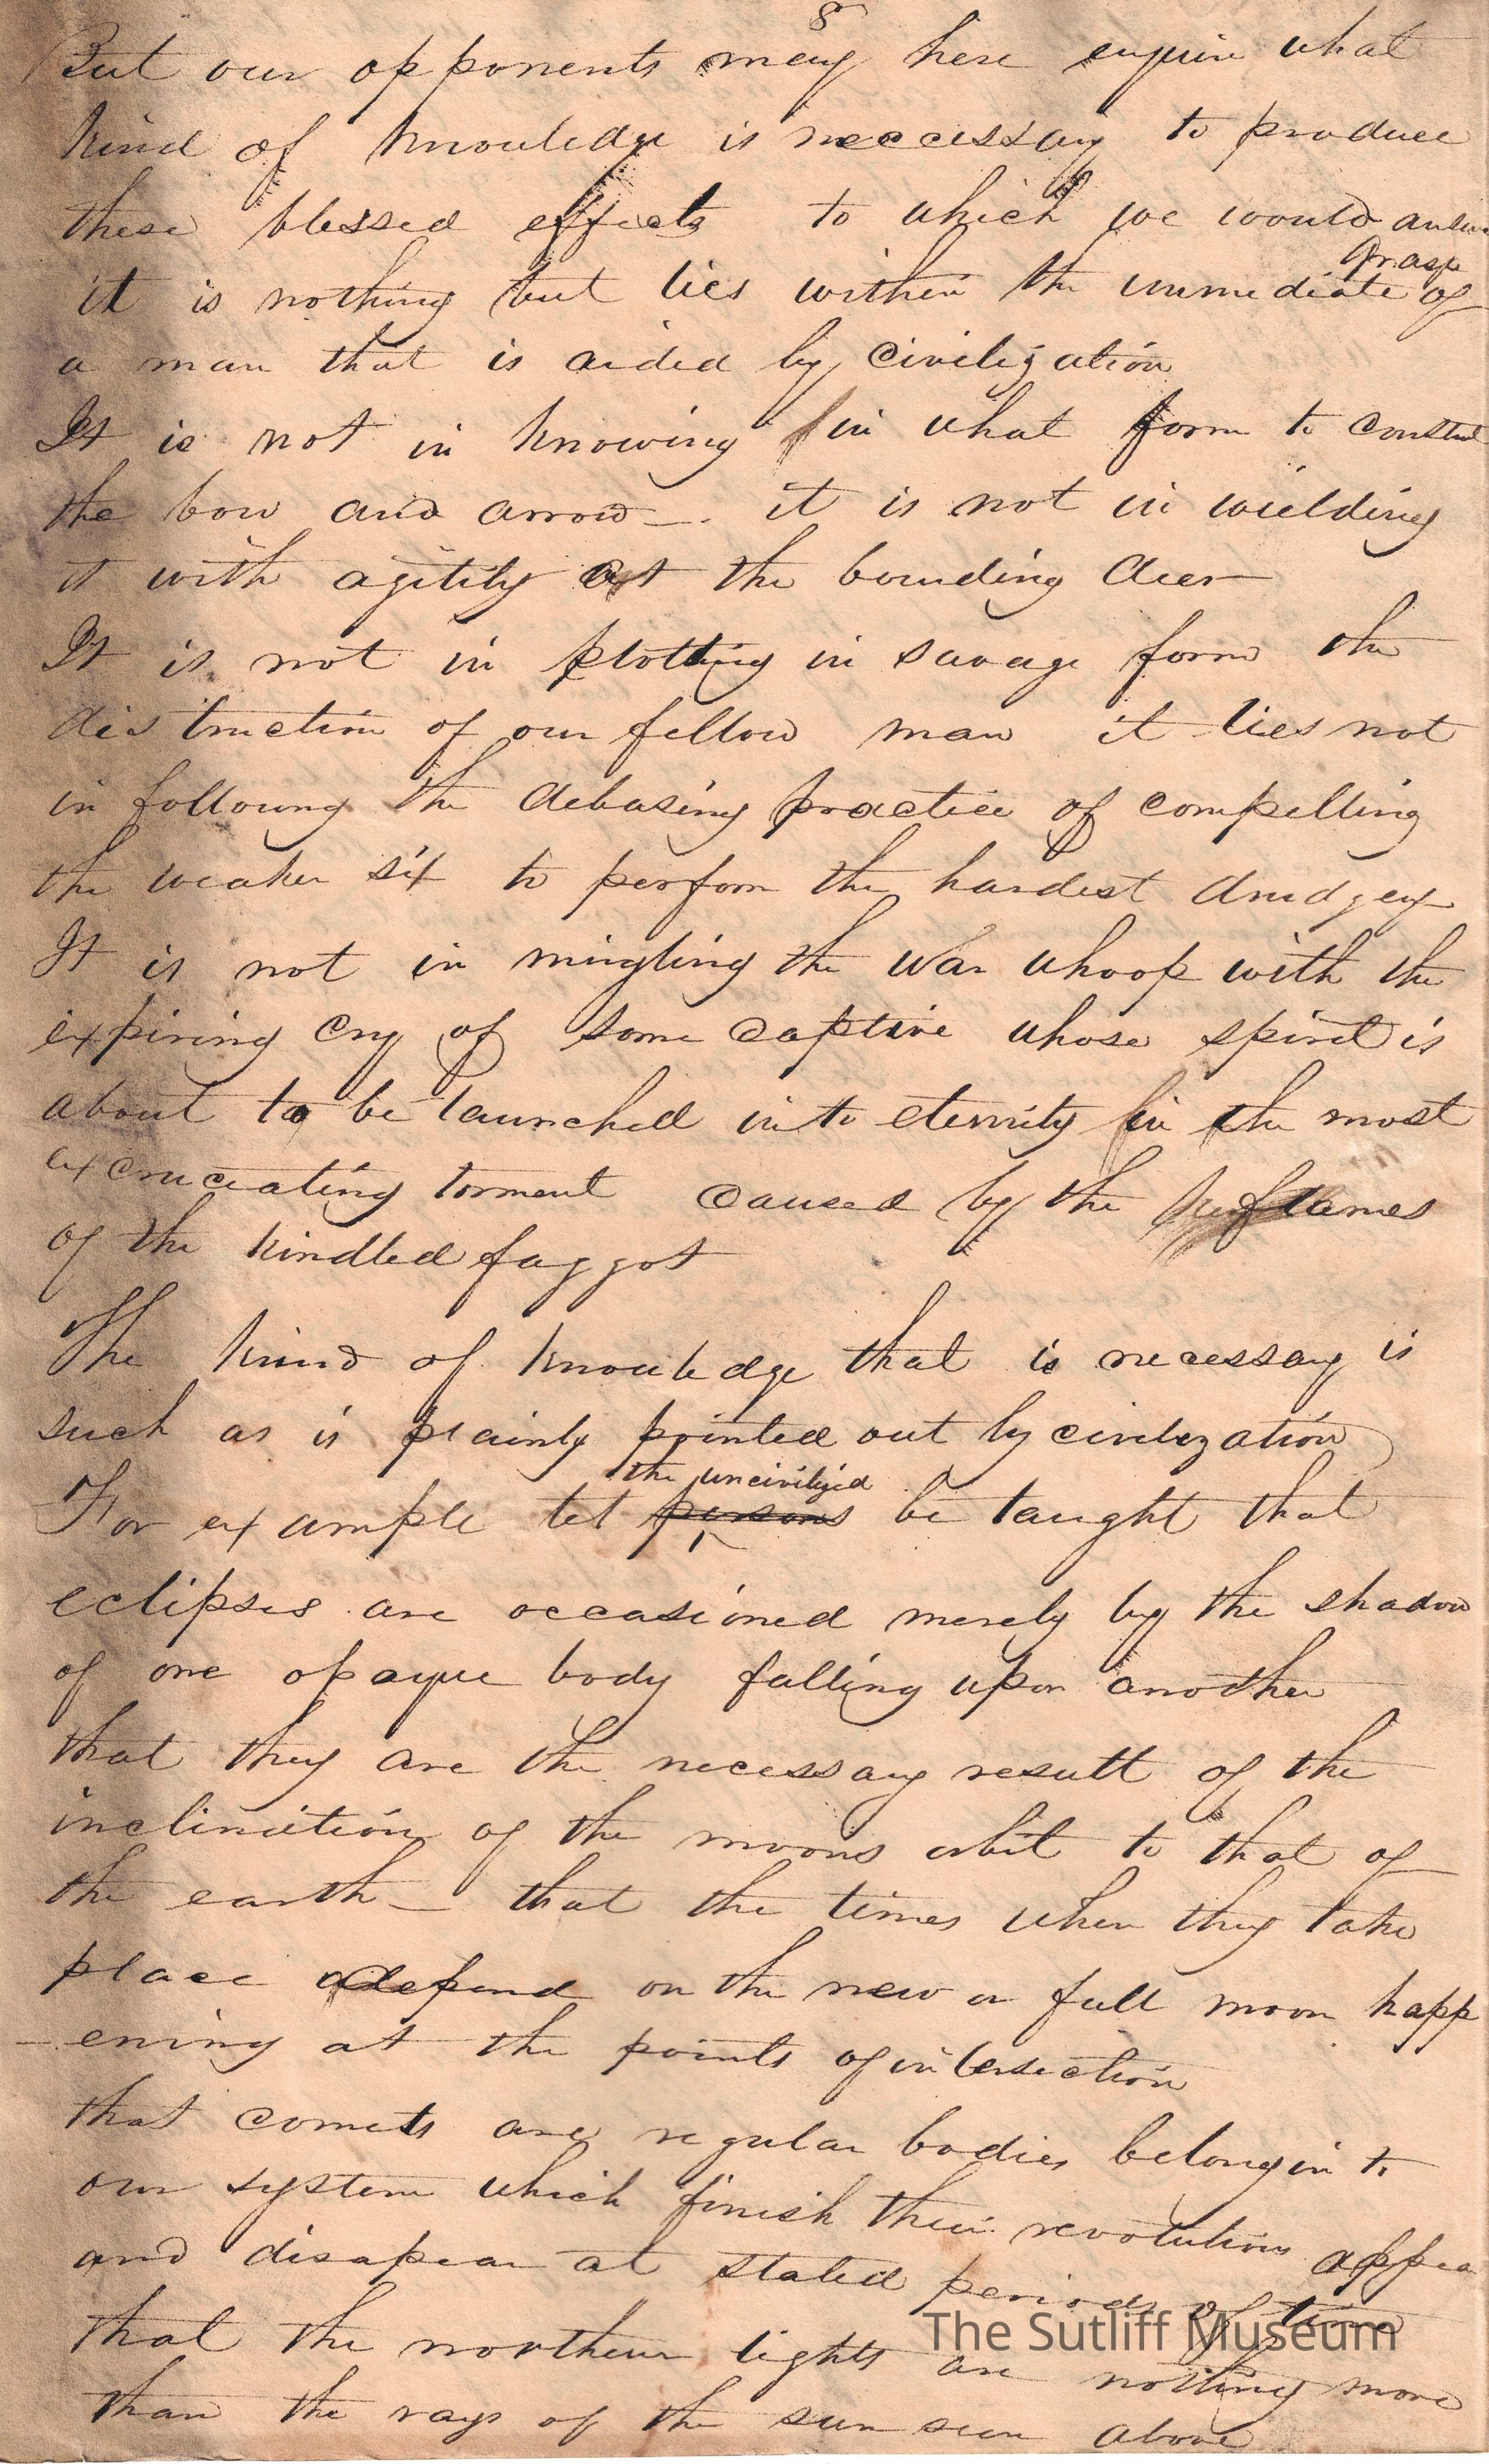 8
But our opponents may here enquire what
kind of knowledge is neccessary to produce
these blessed effects to which we would answer
grasp
it is nothing but lies within the immediate of
a man that is aided by civilization
It is not in knowing in what form to construct
the bow and arrow — it is not in wielding
it with agility at the bounding deer
It is not in plotting in savage form the
distruction of our fellow man it lies not
in following the debasing practice of compelling
the weaker sex to perform the hardest drudgery
It is not in mingling the war whoop with the
expiring cry of some captive whose spirit is
about to be launched into eternity in the most
excruciating torment caused by the flames
of the kindled faggot
The kind of knowledge that is necessary is
such as is plainly pointed out by civilization
the uncivilized
For example let persons be taught that
eclipses are occasioned merely by the shadow
of one opaque body falling upon another
that they are the necessary result of the
inclination of the moons orbit to that of
the earth — that the times when they take
place depend on the new or full moon happ
-ening at the points of intersection
that comets are regular bodies belongin to
our system which finish their revolutions appea
and disapear at stated periods of time
that the northern lights are nothing more
than the rays of the sun seen above
The Sutliff Museum